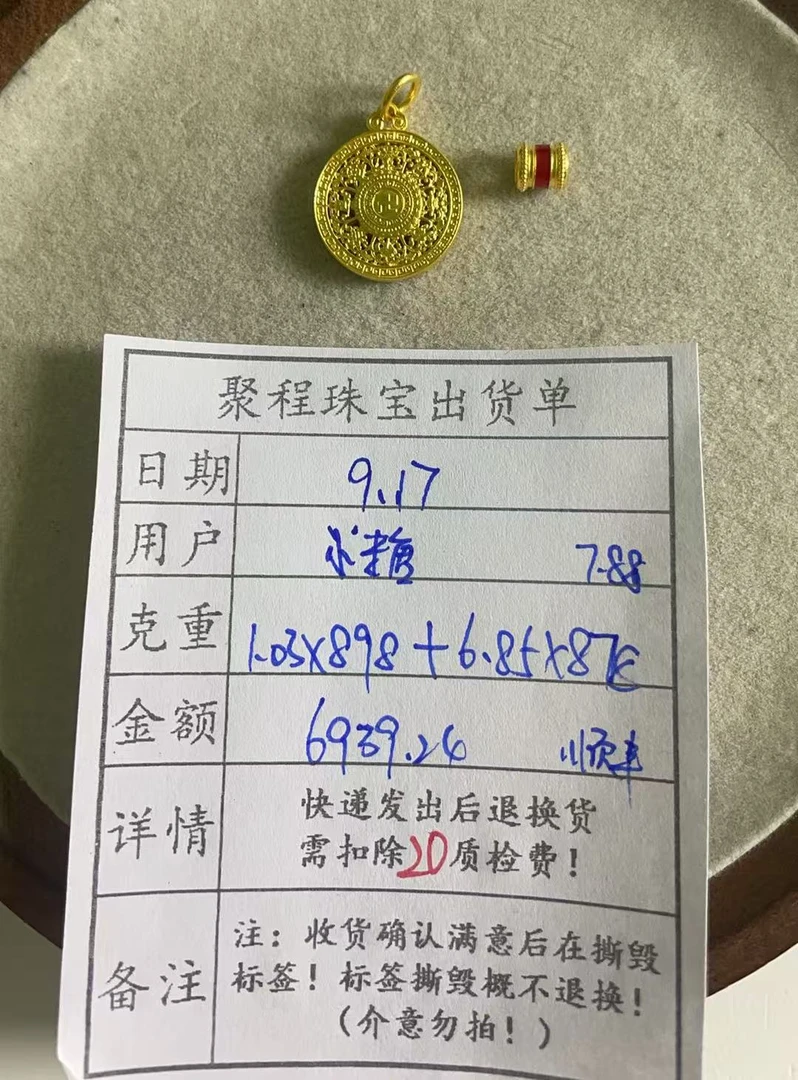 聚程珠宝出货单
日期 9.17
用户 7.88
克重 1.03X898+6.85X878
金额 6939.24 顺丰
详情 快递发出后退换货
需扣除20质检费！
备注 注：收货确认满意后在撕毁
标签！标签撕毁概不退换！
（介意勿拍！）